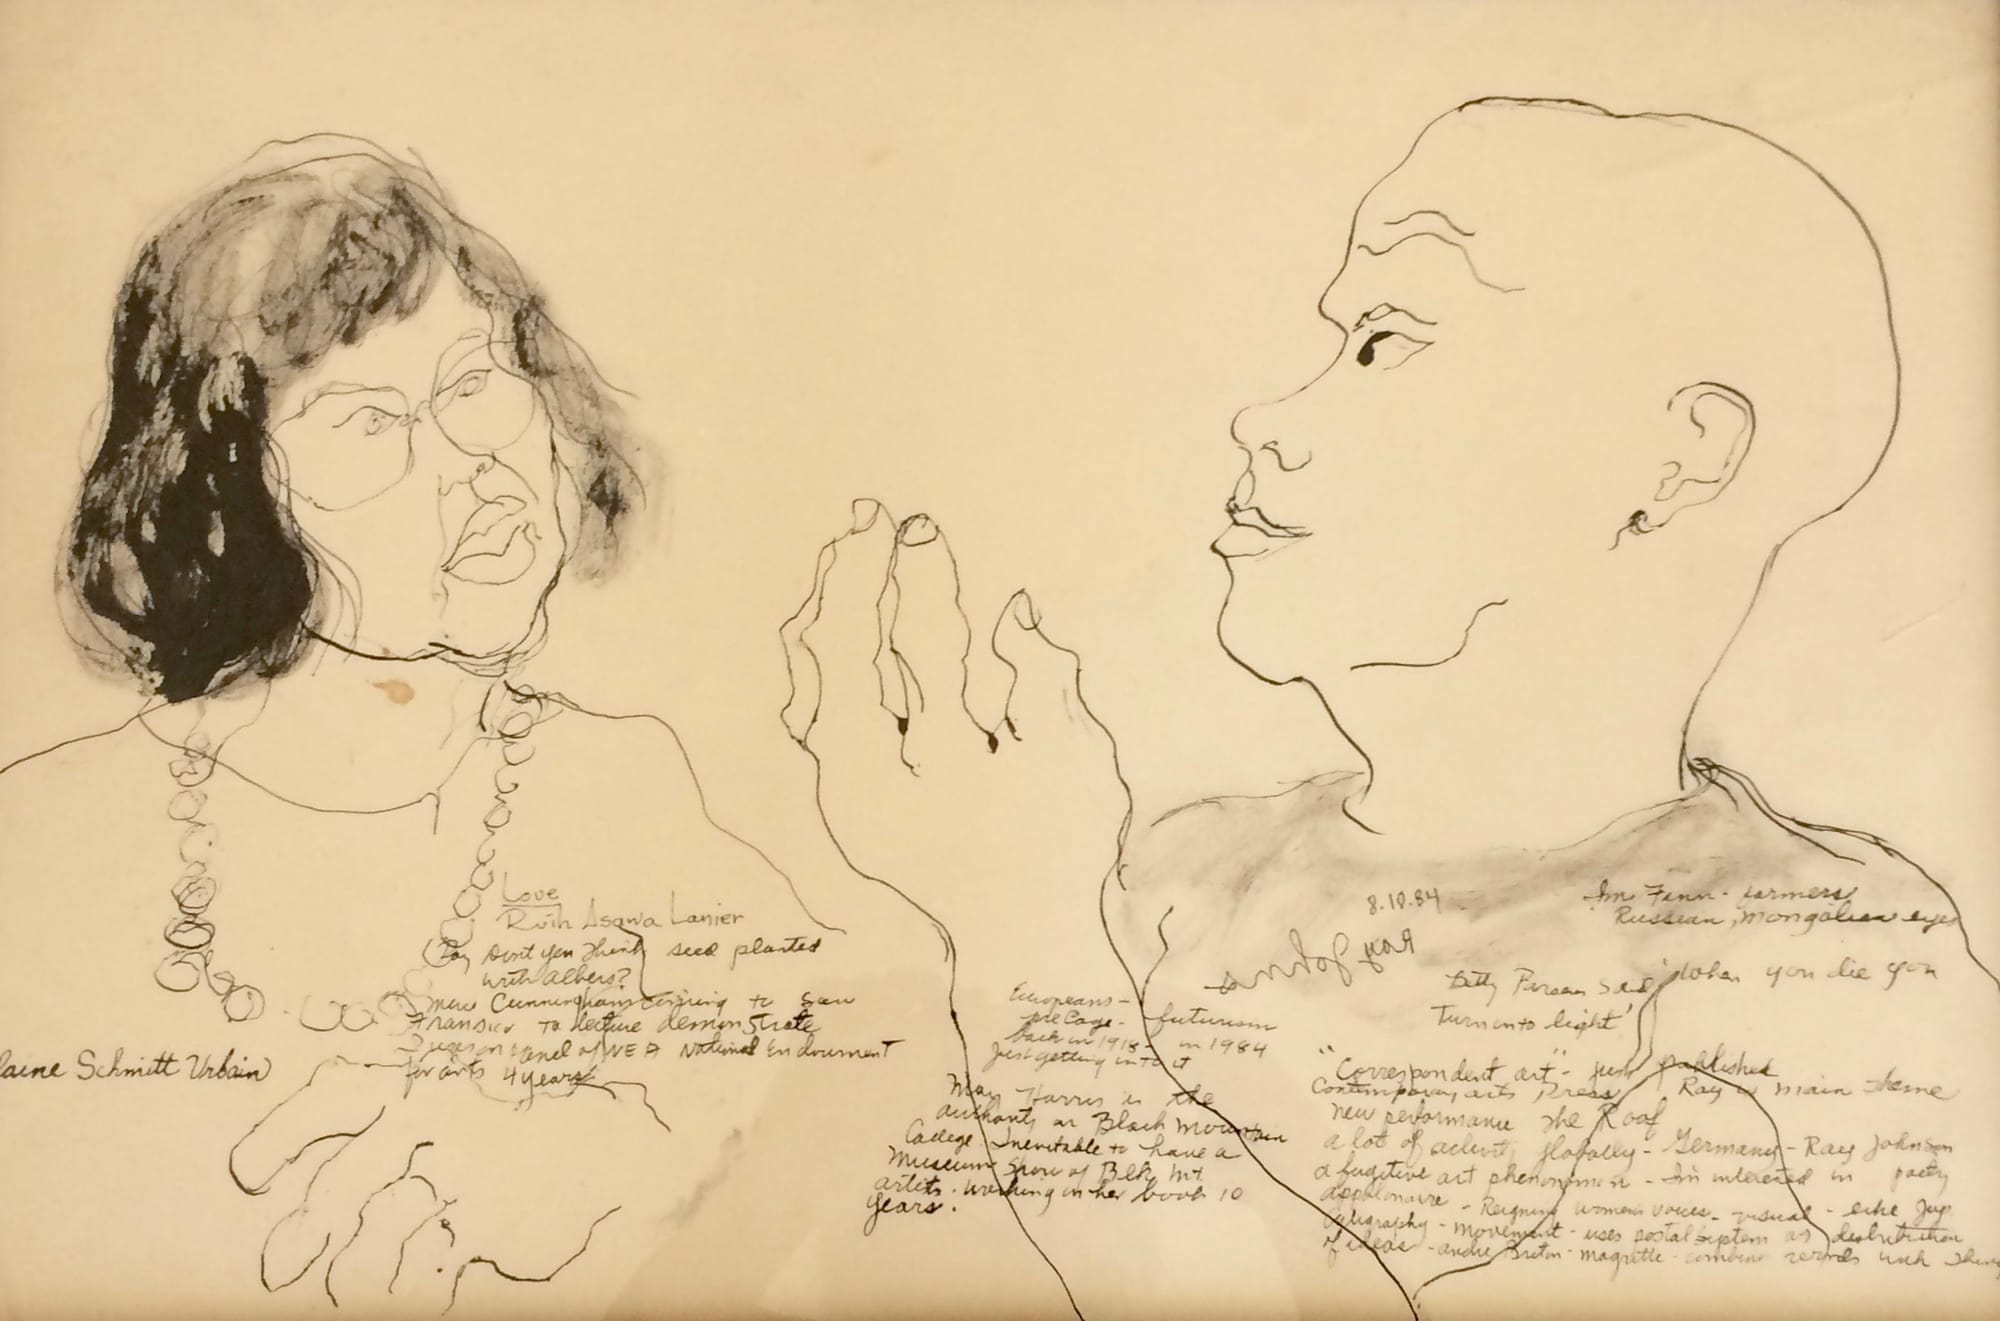 Love
Ruth Asawa Lanier
Ray Don't you think seed planted
with albers?
Merce Cunningham coming to San
Fransico to lecture demonstrate
on panel of NEA National Endowment
for arts 4 years
laine Schmitt Urbain
Europeans -
pre Cage - futurism
back in 1918 - in 1984
just getting into it
May Harris is the
authority on Black Mountain
College. Inevitable to have a
museum show of Blk Mt
artists. working on her book 10
years.
8.10.84
Ray Johnson
Im Finn - farmers
Russian, mongolian eyes
Betty Parson said 'when you die you
Turn into light'
"Correspondent art" - just published
Contemporary arts Press Ray is main theme
new performance The Roof
a lot of activity globally - Germany - Ray Johnson
a fugitive art phenonimon - Im interested in poetry
appolonaire - Reigning womens voices - visual - like Jap
caligraphy - movement - uses postal system as distribution
of ideas - andre Breton - magritte - combine records with